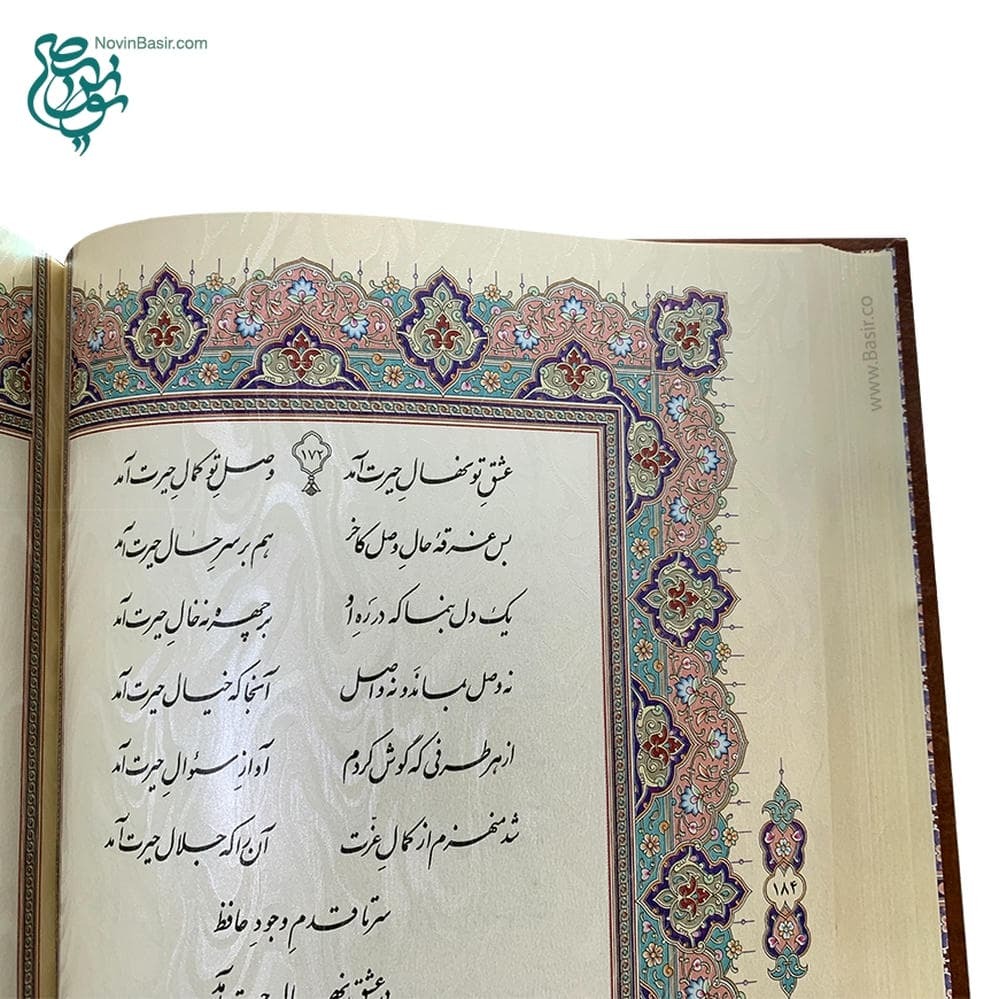 NovinBasir.com
نوین بصیر
www.Basir.co
۱۷۲
عشقِ تو نهالِ حیرت آمد وصلِ تو کمالِ حیرت آمد
بس غرقهٔ حالِ وصل کآخر هم بر سرِ حالِ حیرت آمد
یک دل بنما که در رَهِ او بر چهره نه خالِ حیرت آمد
نه وصل بماند و نه واصل آنجا که خیالِ حیرت آمد
از هر طرفی که گوش کردم آوازِ سؤالِ حیرت آمد
شد منهزم از کمالِ عزّت آن را که جلالِ حیرت آمد
سر تا قدمِ وجودِ حافظ
در عشق نهالِ حیرت آمد
۱۸۴